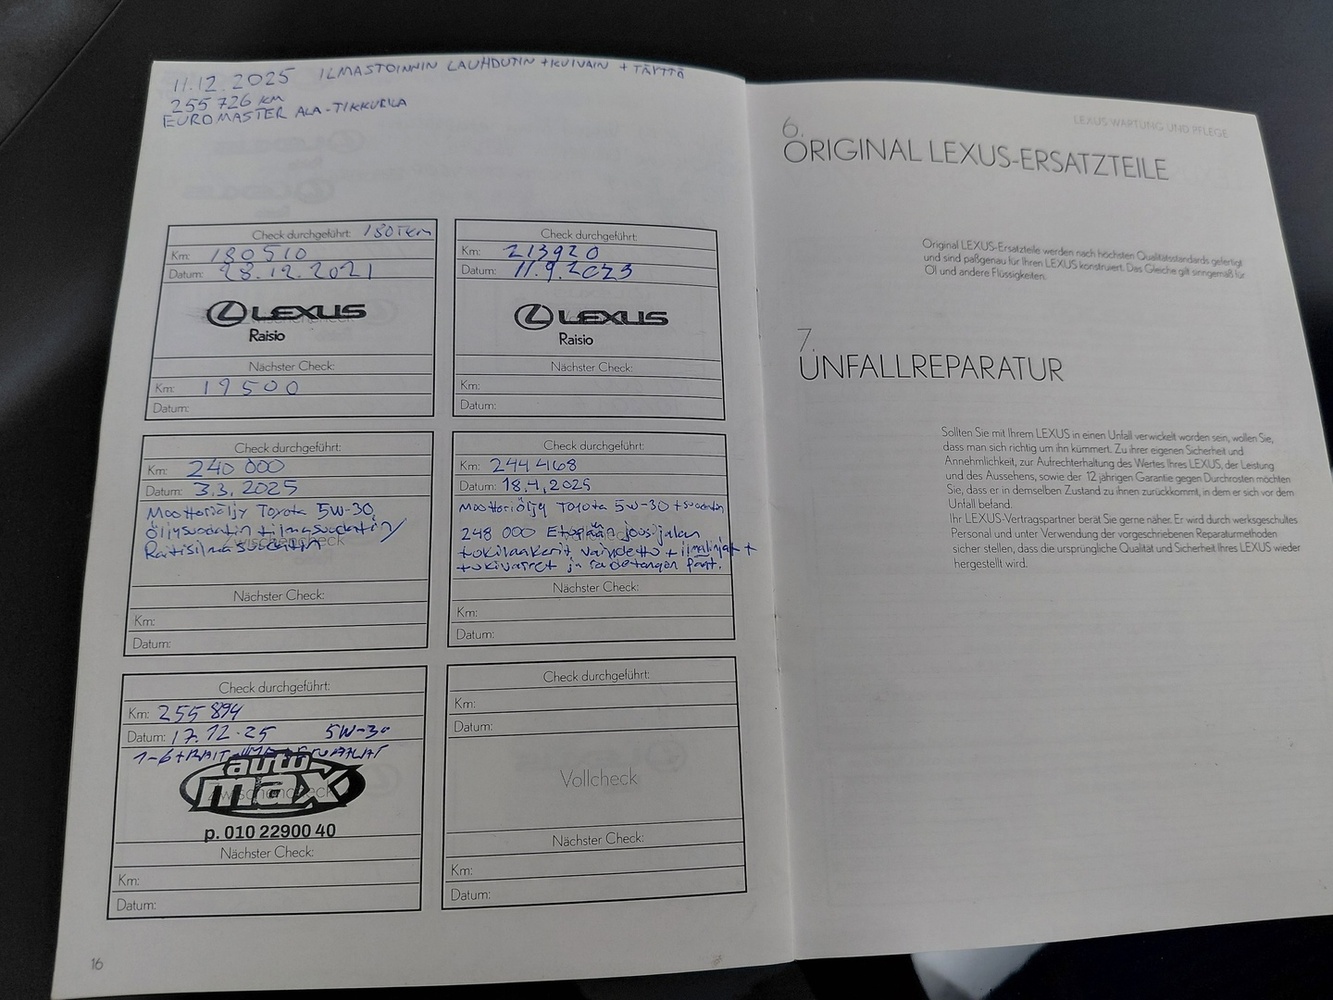 11.12.2025 ILMASTOINNIN LAUHDUTIN + KUIVAIN + TÄYTTÖ
255 726 km
EUROMASTER ALA-TIKKURILA
Check durchgeführt: 180 Tkm
Km: 180510
Datum: 28.12.2021
LEXUS
Raisio
Nächster Check:
Km: 19500
Datum:
Check durchgeführt:
Km: 213920
Datum: 11.9.2023
LEXUS
Raisio
Nächster Check:
Km:
Datum:
Check durchgeführt:
Km: 240 000
Datum: 3.3.2025
Moottoriöljy Toyota 5W-30,
öljysuodatin + ilmasuodatin/
Raitisilmasuodatin
Zwischencheck
Nächster Check:
Km:
Datum:
Check durchgeführt:
Km: 244 468
Datum: 18.4.2025
Moottoriöljy Toyota 5W-30 + suodatin
248 000 Etupään jousijalan
tukilaakerit, vaihdettu +
tukivarret ja raidetangon päät.
Nächster Check:
Km:
Datum:
Check durchgeführt:
Km: 255 894
Datum: 17.12.25 5W-30
auto
max
p. 010 22900 40
Nächster Check:
Km:
Datum:
Check durchgeführt:
Km:
Datum:
Vollcheck
Nächster Check:
Km:
Datum:
16
LEXUS WARTUNG UND PFLEGE
6.
ORIGINAL LEXUS-ERSATZTEILE
Original LEXUS-Ersatzteile werden nach höchsten Qualitätsstandards gefertigt
und sind paßgenau für Ihren LEXUS konstruiert. Das Gleiche gilt sinngemäß für
Öl und andere Flüssigkeiten.
7.
UNFALLREPARATUR
Sollten Sie mit Ihrem LEXUS in einen Unfall verwickelt worden sein, wollen Sie,
dass man sich richtig um ihn kümmert. Zu ihrer eigenen Sicherheit und
Annehmlichkeit, zur Aufrechterhaltung des Wertes Ihres LEXUS, der Leistung
und des Aussehens, sowie der 12 jährigen Garantie gegen Durchrosten möchten
Sie, dass er in demselben Zustand zu ihnen zurückkommt, in dem er sich vor dem
Unfall befand.
Ihr LEXUS-Vertragspartner berät Sie gerne näher. Er wird durch werksgeschultes
Personal und unter Verwendung der vorgeschriebenen Reparaturmethoden
sicher stellen, dass die ursprüngliche Qualität und Sicherheit Ihres LEXUS wieder
hergestellt wird.